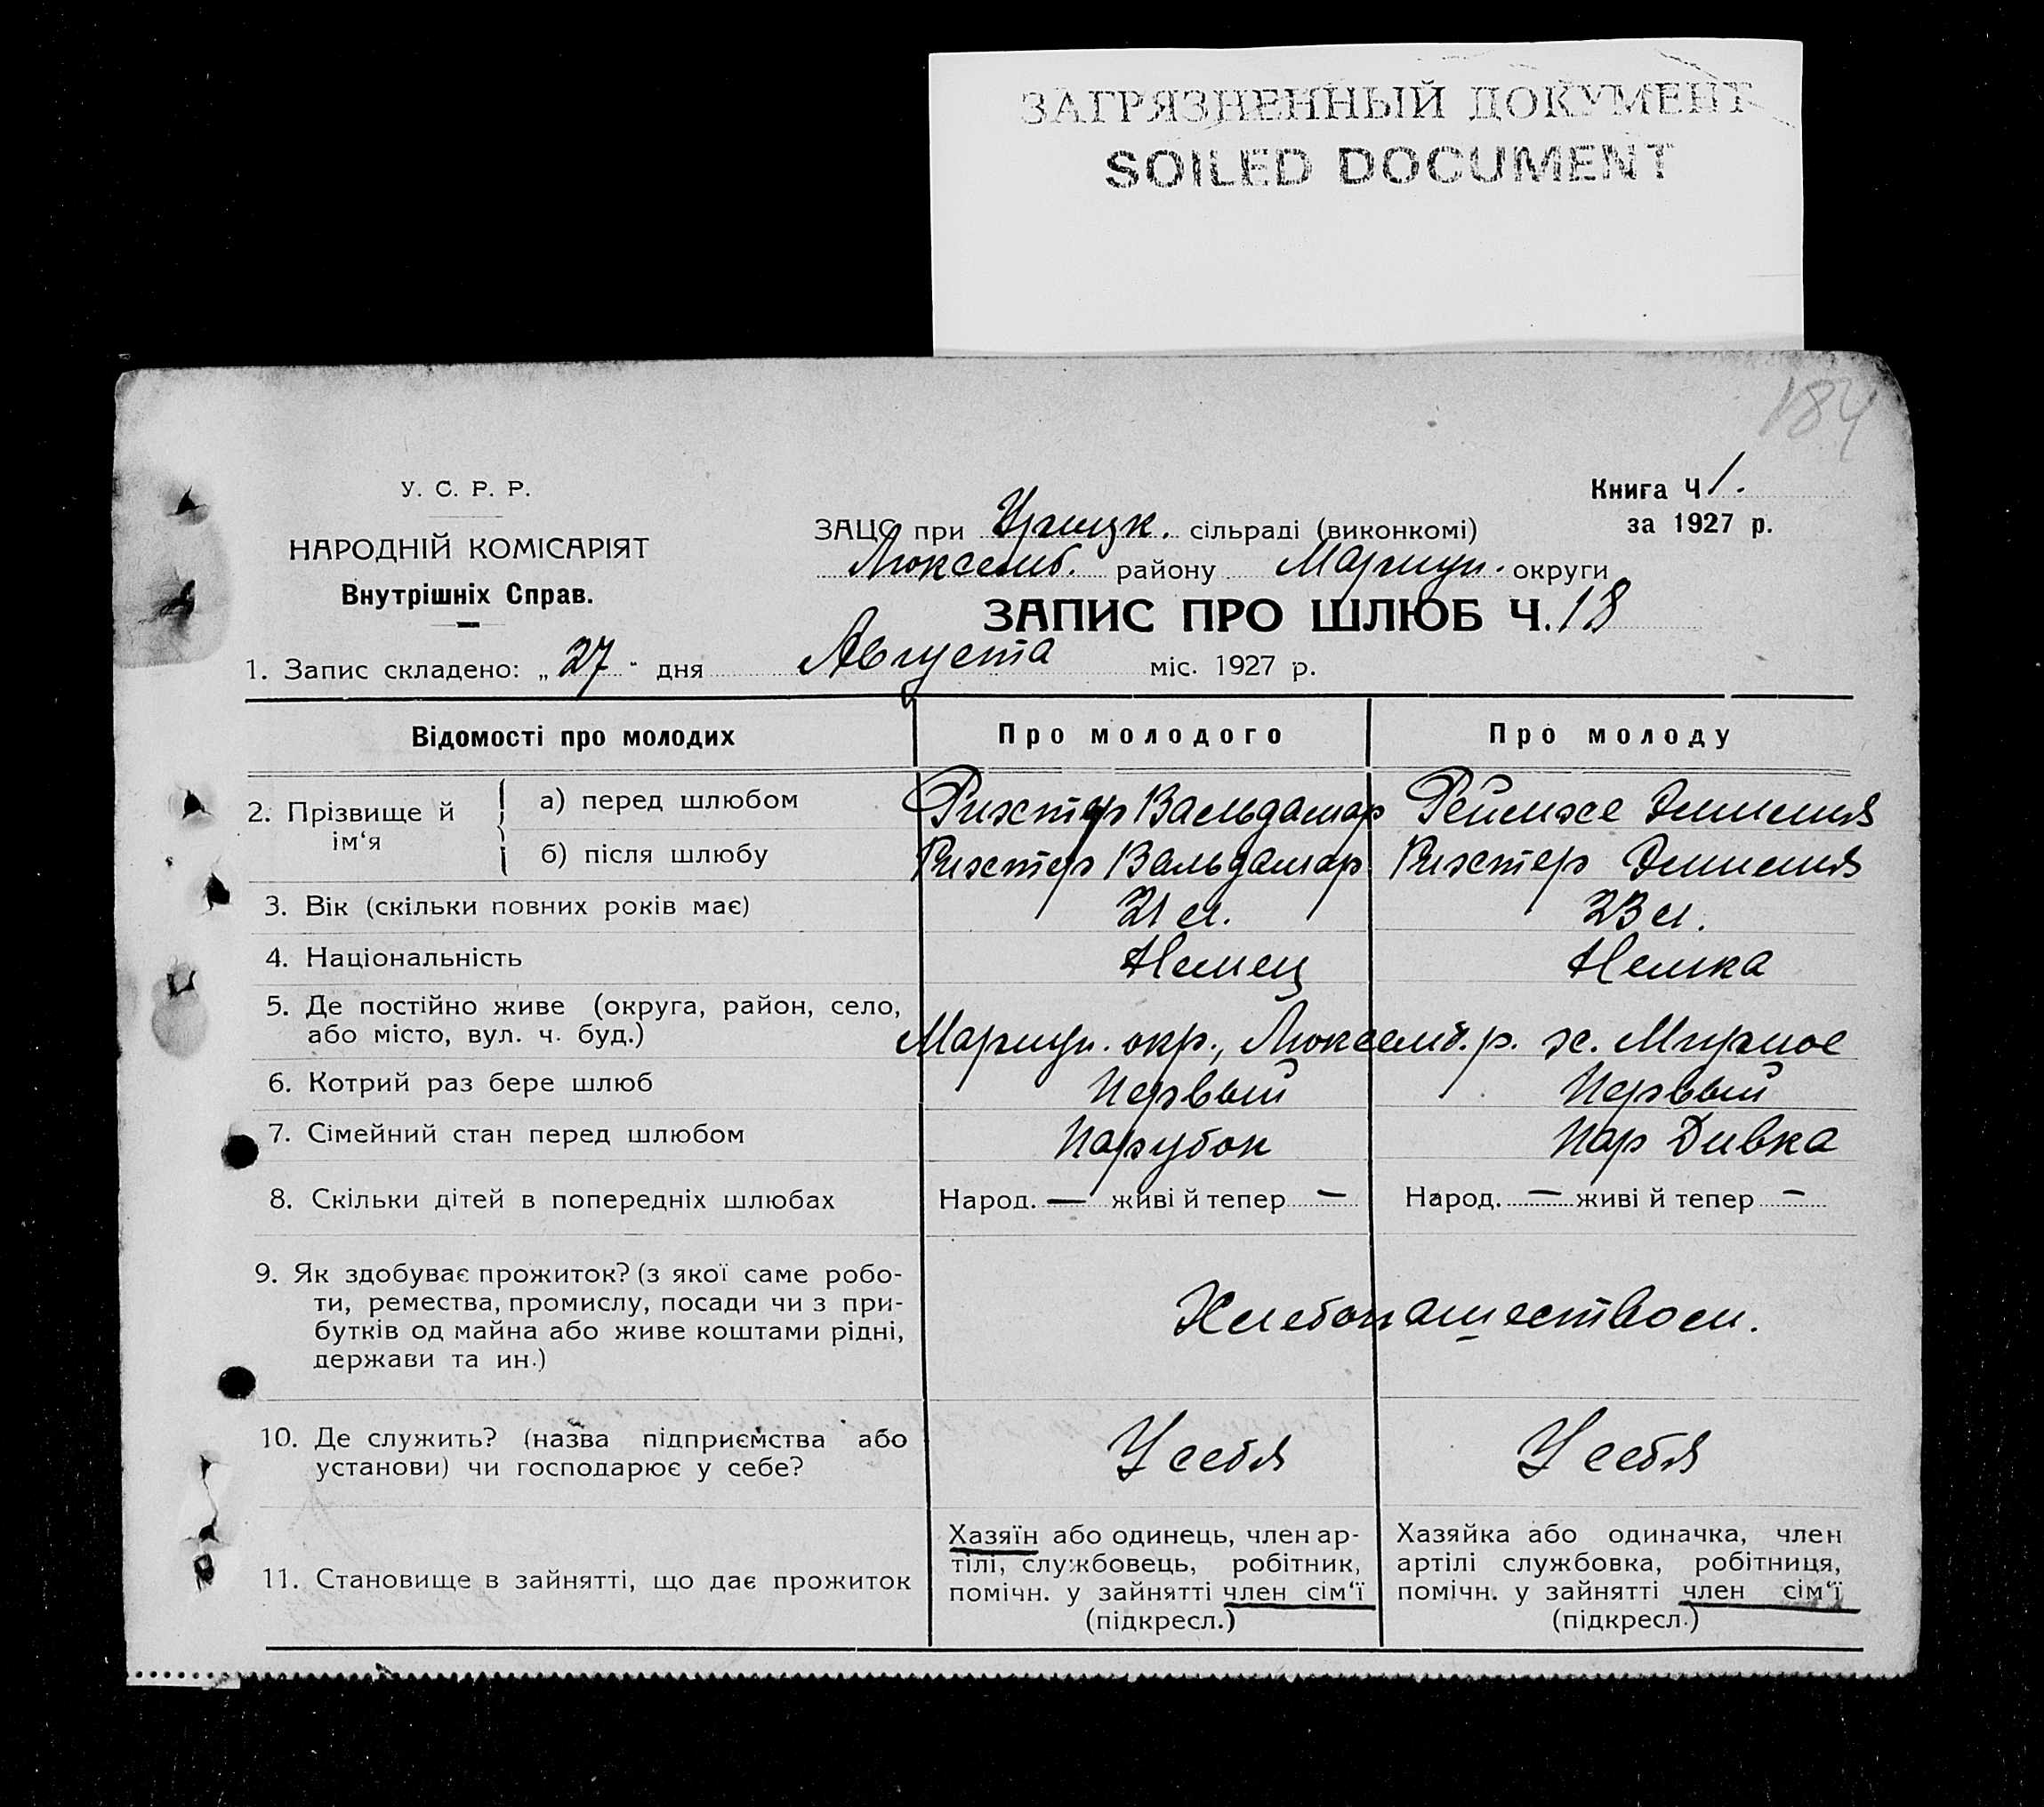 ЗАГРЯЗНЕННЫЙ ДОКУМЕНТ
SOILED DOCUMENT
184
У. С. Р. Р.
НАРОДНІЙ КОМІСАРІЯТ
Внутрішніх Справ.
Книга Ч 1.
за 1927 р.
ЗАЦС при Урицк. сільраді (виконкомі)
Люксемб. району Мариуп. округи
ЗАПИС ПРО ШЛЮБ Ч. 18
1. Запис складено: „27" дня Августа міс. 1927 р.
Відомості про молодих Про молодого Про молоду
2. Прізвище й ім‘я
а) перед шлюбом Рихтер Вальдамар Реймхе Эмилия
б) після шлюбу Рихтер Вальдамар Рихтер Эмилия
3. Вік (скільки повних років має) 21 л. 23 л.
4. Національність Немец Немка
5. Де постійно живе (округа, район, село,
або місто, вул. ч. буд.) Мариуп. окр., Люксемб. р. х. Мирное
6. Котрий раз бере шлюб Первый Первый
7. Сімейний стан перед шлюбом Парубок Пар Дивка
8. Скільки дітей в попередніх шлюбах Народ. — живі й тепер — Народ. — живі й тепер —
9. Як здобуває прожиток? (з якої саме робо-
ти, ремества, промислу, посади чи з при-
бутків од майна або живе коштами рідні,
держави та ин.)
Хлебопашеством.
10. Де служить? (назва підприємства або
установи) чи господарює у себе?
У себя У себя
11. Становище в зайнятті, що дає прожиток
Хазяїн або одинець, член ар-
тілі, службовець, робітник,
помічн. у зайнятті член сім‘ї
(підкресл.)
Хазяйка або одиначка, член
артілі службовка, робітниця,
помічн. у зайнятті член сім‘ї
(підкресл.)